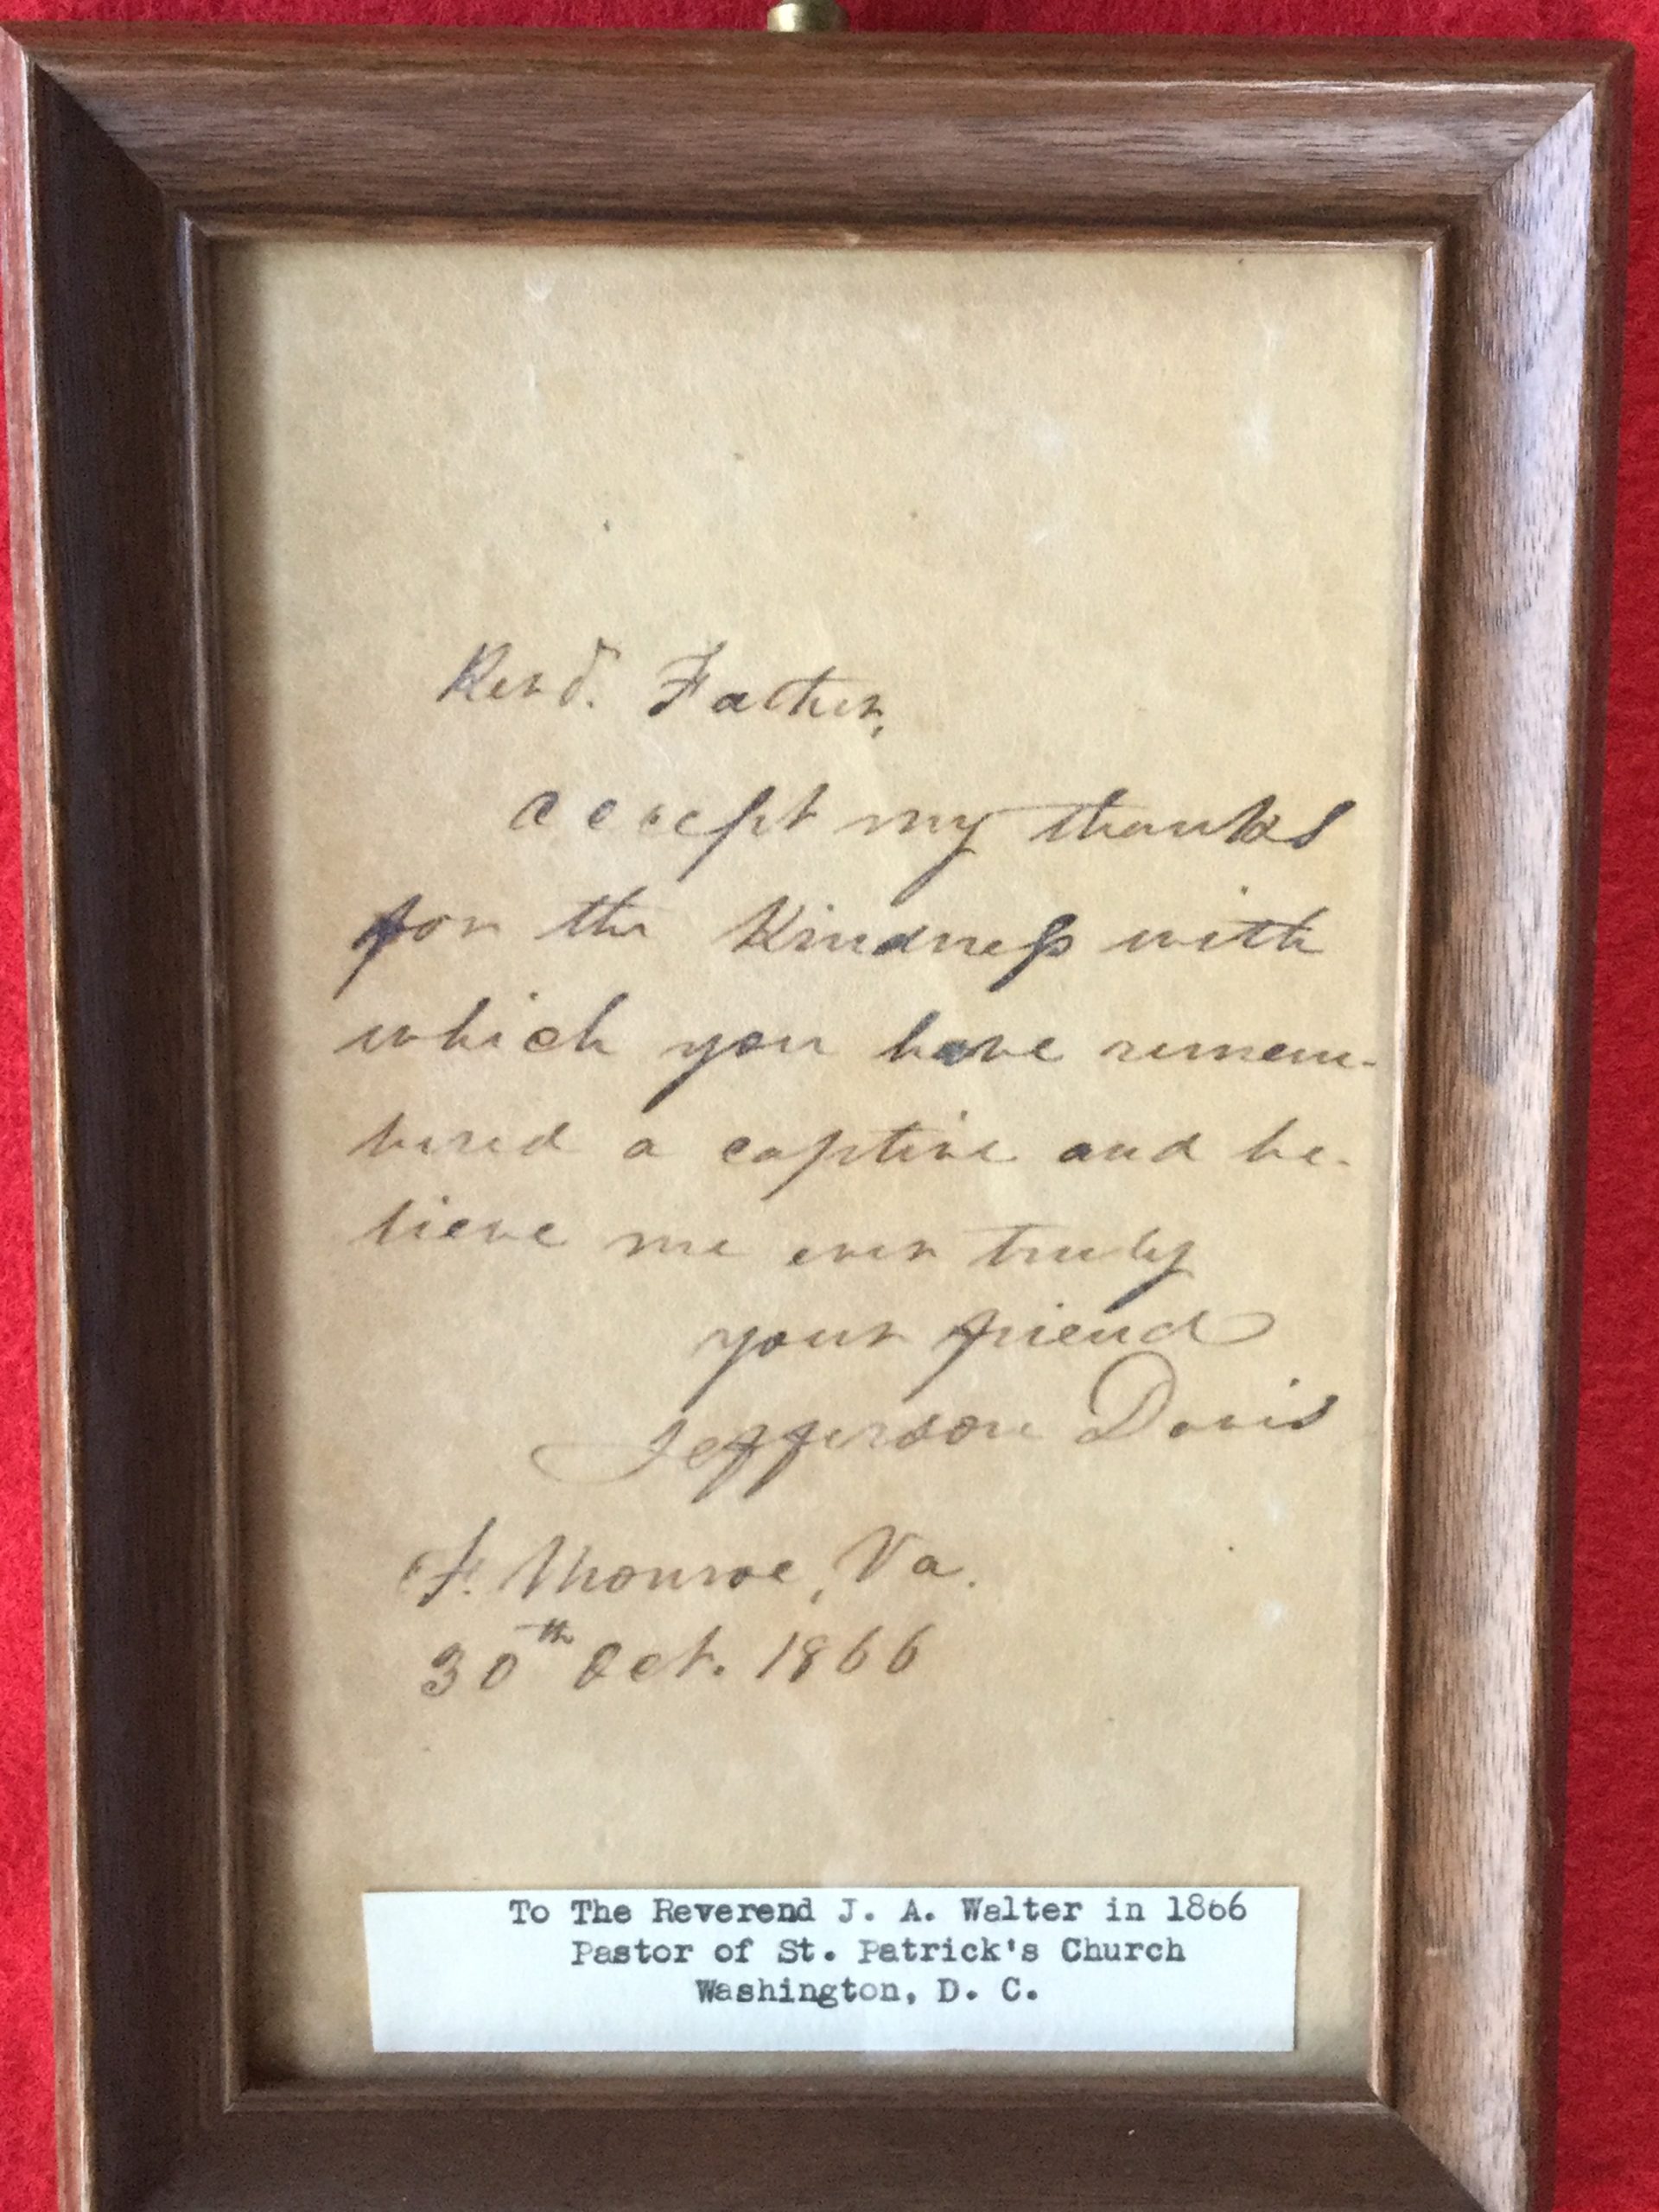 Revd. Father,
accept my thanks
for the kindness with
which you have remem-
bered a captive and be-
lieve me ever truly
your friend
Jefferson Davis
Ft. Monroe, Va.
30th Oct. 1866
To The Reverend J. A. Walter in 1866
Pastor of St. Patrick's Church
Washington, D. C.